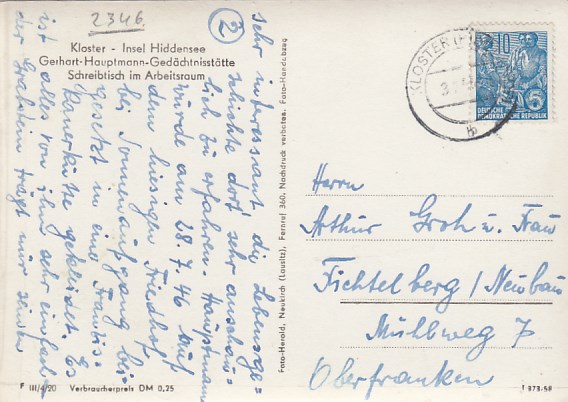 2346.
②
Kloster - Insel Hiddensee
Gerhart-Hauptmann-Gedächtnisstätte
Schreibtisch im Arbeitsraum
sehr interessant die Lebensge=
schichte dort sehr anschau=
lich zu erfahren. Hauptmann
wurde am 28.7.46 auf
dem hiesigen Friedhof
bei Sonnenaufgang bei=
gesetzt in eine Franzis=
kanerkutte gekleidet. Es
ist alles von ihm sehr einfach
der Grabstein trägt nur seinen
Foto-Herold, Neukirch (Lausitz), Fernruf 360, Nachdruck verboten. Foto-Handabzug
KLOSTER
b
10
DEUTSCHE
DEMOKRATISCHE REPUBLIK
Herrn
Arthur Groh u. Frau
Fichtelberg/Neubau
Mühlweg 7
Oberfranken
F III/4/20 Verbraucherpreis DM 0,25
1 973-58